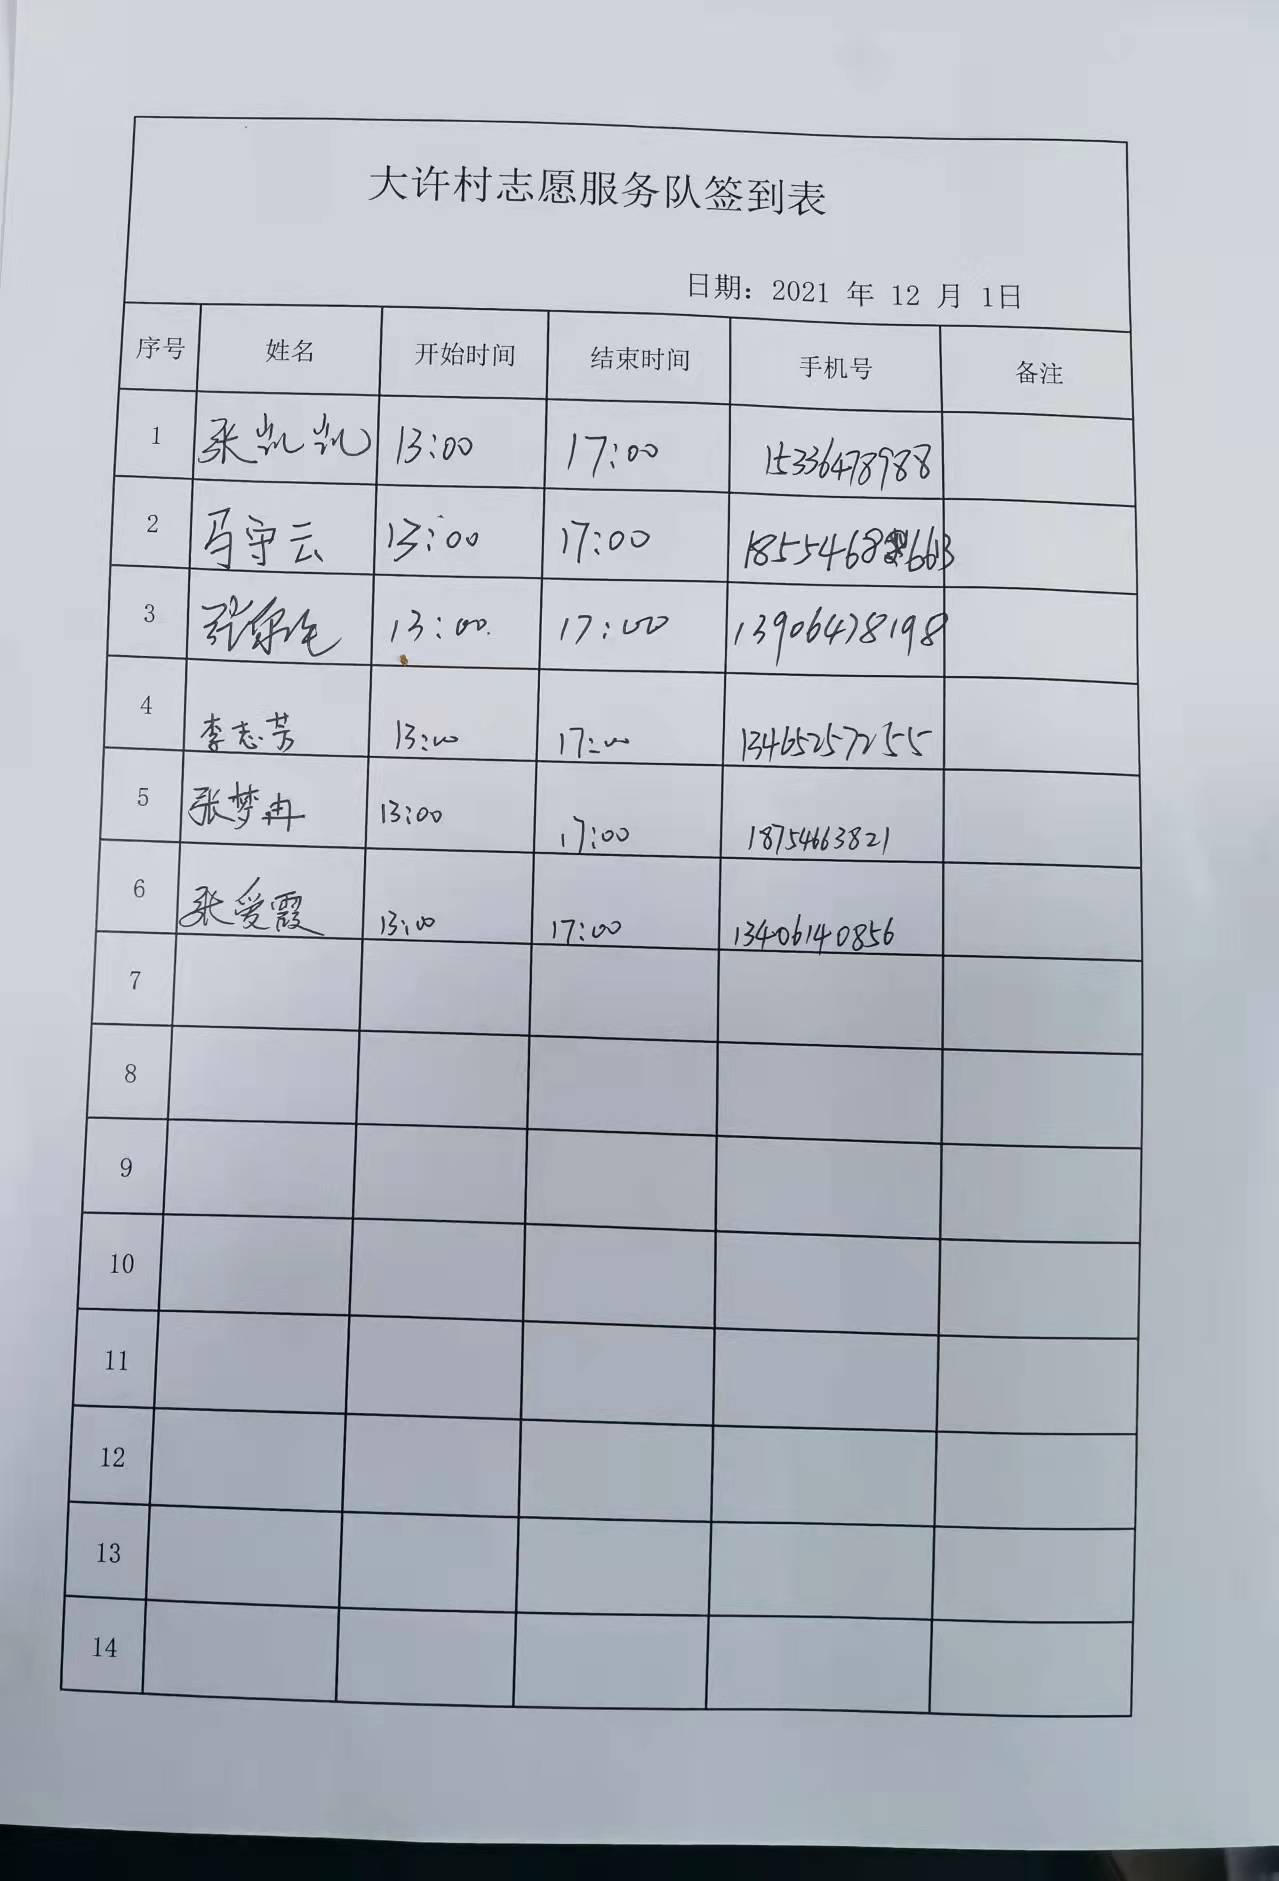 大许村志愿服务队签到表
日期：2021 年 12 月 1日
序号 姓名 开始时间 结束时间 手机号 备注
1 张凯凯 13:00 17:00 15336478988
2 马守云 13:00 17:00
3 13:00 17:00 13906478198
4 李志芳 13:00 17:00 13465257255
5 张梦冉 13:00 17:00 18754663821
6 张爱霞 13:00 17:00 13406140856
7
8
9
10
11
12
13
14